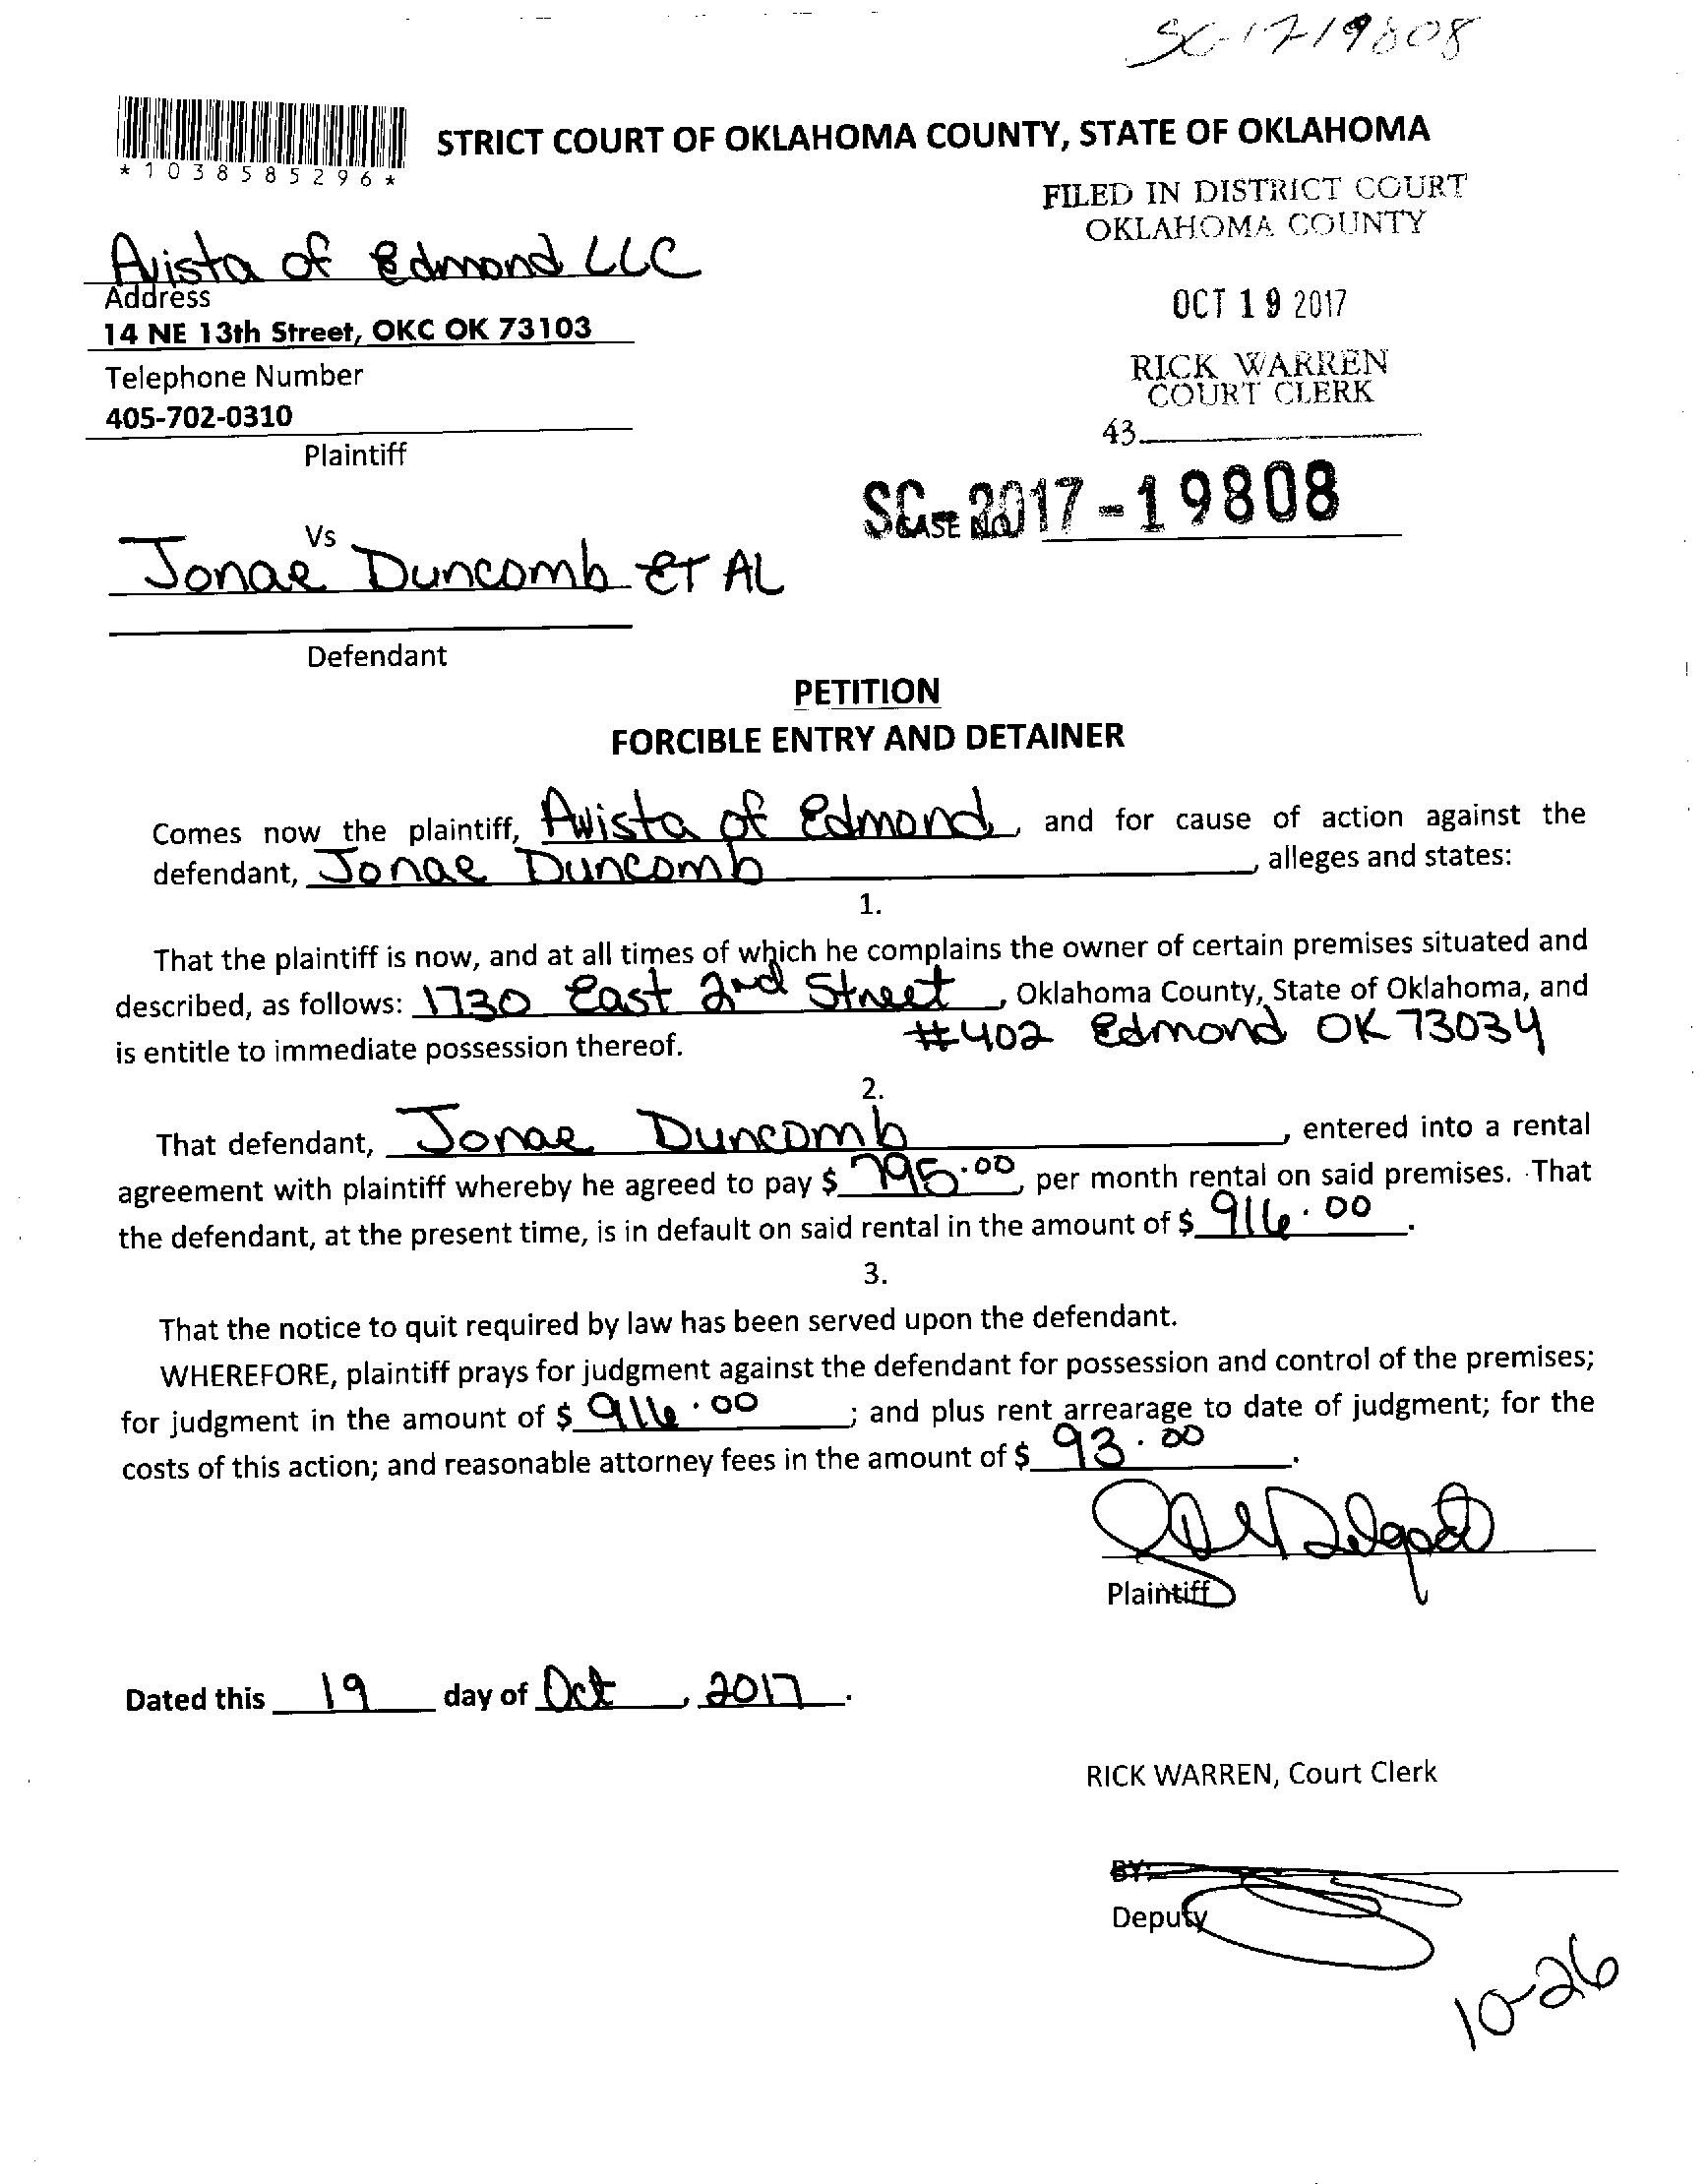 SC-17-19808
STRICT COURT OF OKLAHOMA COUNTY, STATE OF OKLAHOMA
*1038585296*
FILED IN DISTRICT COURT
OKLAHOMA COUNTY
Avista of Edmond LLC
Address
14 NE 13th Street, OKC OK 73103
OCT 19 2017
Telephone Number
405-702-0310
RICK WARREN
COURT CLERK
43
Plaintiff
SC-2017-19808
CASE NO
Vs
Jonae Duncomb ET AL
Defendant
PETITION
FORCIBLE ENTRY AND DETAINER
Comes now the plaintiff, Avista of Edmond, and for cause of action against the
defendant, Jonae Duncomb, alleges and states:
1.
That the plaintiff is now, and at all times of which he complains the owner of certain premises situated and
described, as follows: 1730 East 2nd Street, Oklahoma County, State of Oklahoma, and
#402 Edmond OK 73034
is entitle to immediate possession thereof.
2.
That defendant, Jonae Duncomb, entered into a rental
agreement with plaintiff whereby he agreed to pay $ 795.00, per month rental on said premises. That
the defendant, at the present time, is in default on said rental in the amount of $ 916.00.
3.
That the notice to quit required by law has been served upon the defendant.
WHEREFORE, plaintiff prays for judgment against the defendant for possession and control of the premises;
for judgment in the amount of $ 916.00; and plus rent arrearage to date of judgment; for the
costs of this action; and reasonable attorney fees in the amount of $ 93.00.
Plaintiff
Dated this 19 day of Oct, 2017.
RICK WARREN, Court Clerk
BY:
Deputy
10-26